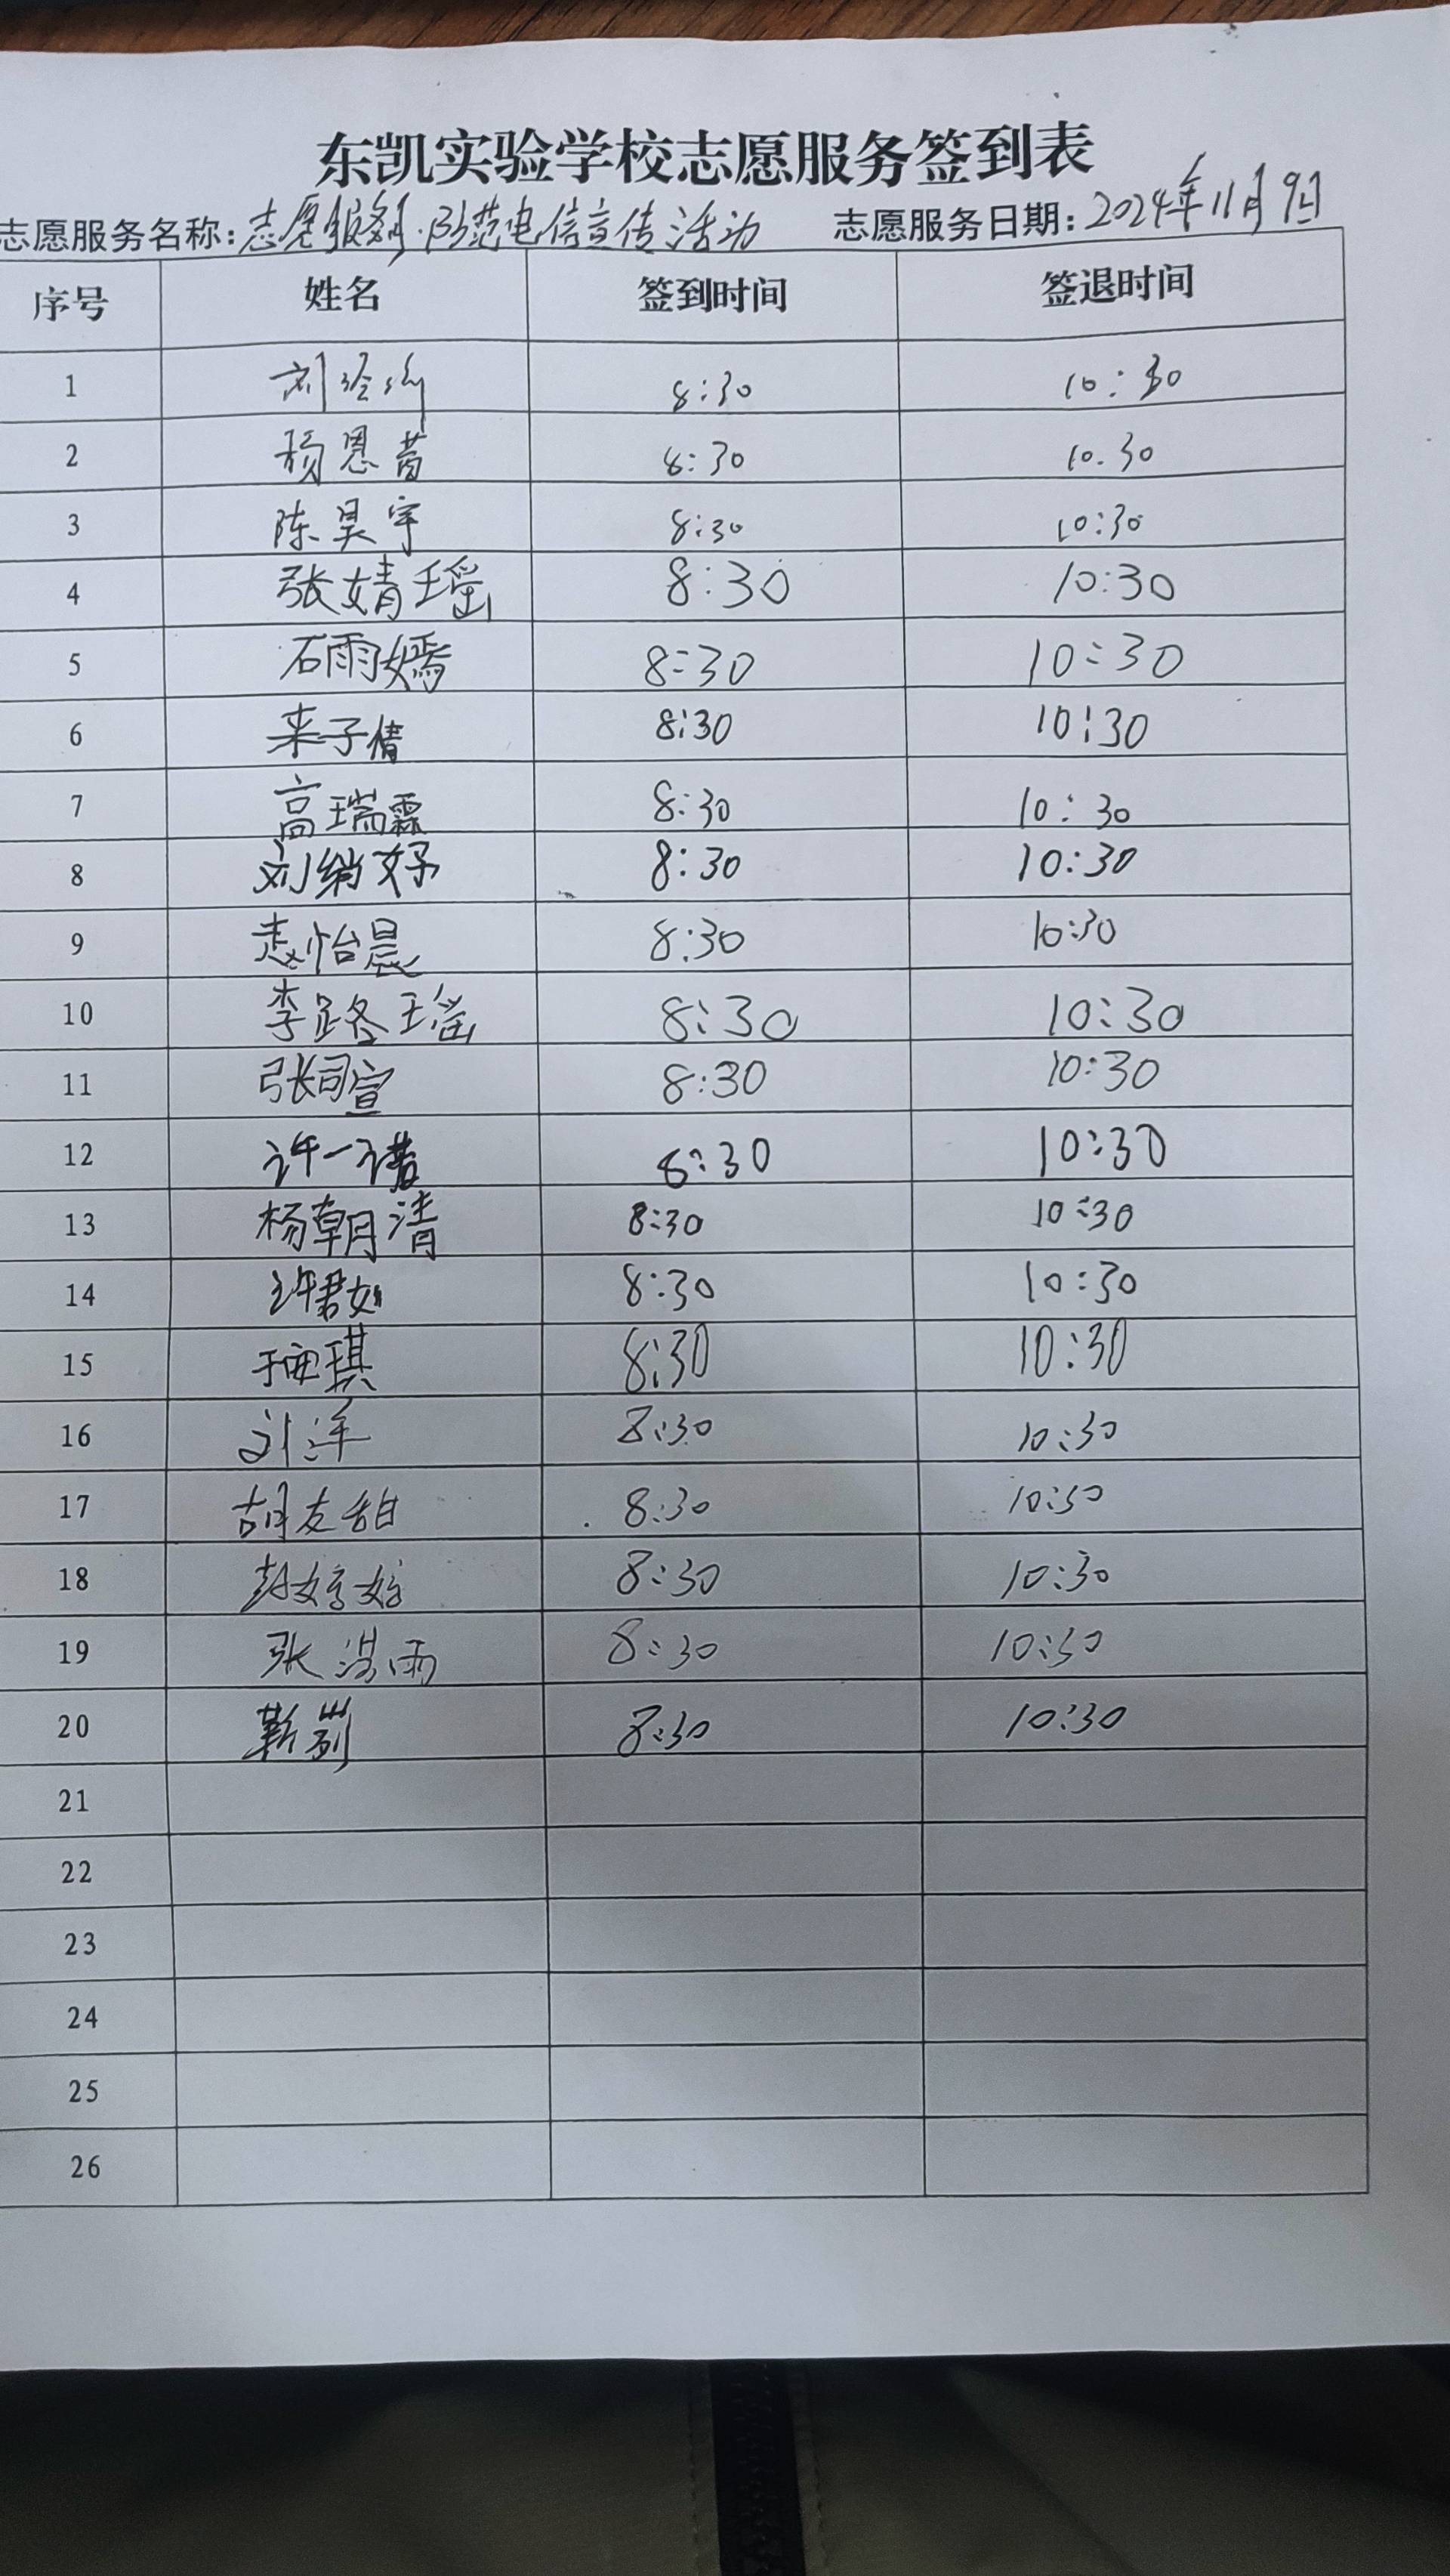 东凯实验学校志愿服务签到表
志愿服务名称:志愿服务·防范电信宣传活动 志愿服务日期:2024年11月9日
序号 姓名 签到时间 签退时间
1 刘 8:30 10:30
2 恩 8:30 10.30
3 陈昊宇 8:30 10:30
4 张婧瑶 8:30 10:30
5 石雨嫣 8:30 10:30
6 来子倩 8:30 10:30
7 高瑞霖 8:30 10:30
8 刘绡妤 8:30 10:30
9 怡晨 8:30 10:30
10 李路瑶 8:30 10:30
11 张司宣 8:30 10:30
12 许一诺 8:30 10:30
13 杨朝清 8:30 10:30
14 许君如 8:30 10:30
15 于琪 8:30 10:30
16 刘洋 8:30 10:30
17 胡友甜 8:30 10:30
18 婷婷 8:30 10:30
19 张淏雨 8:30 10:30
20 靳 8:30 10:30
21
22
23
24
25
26